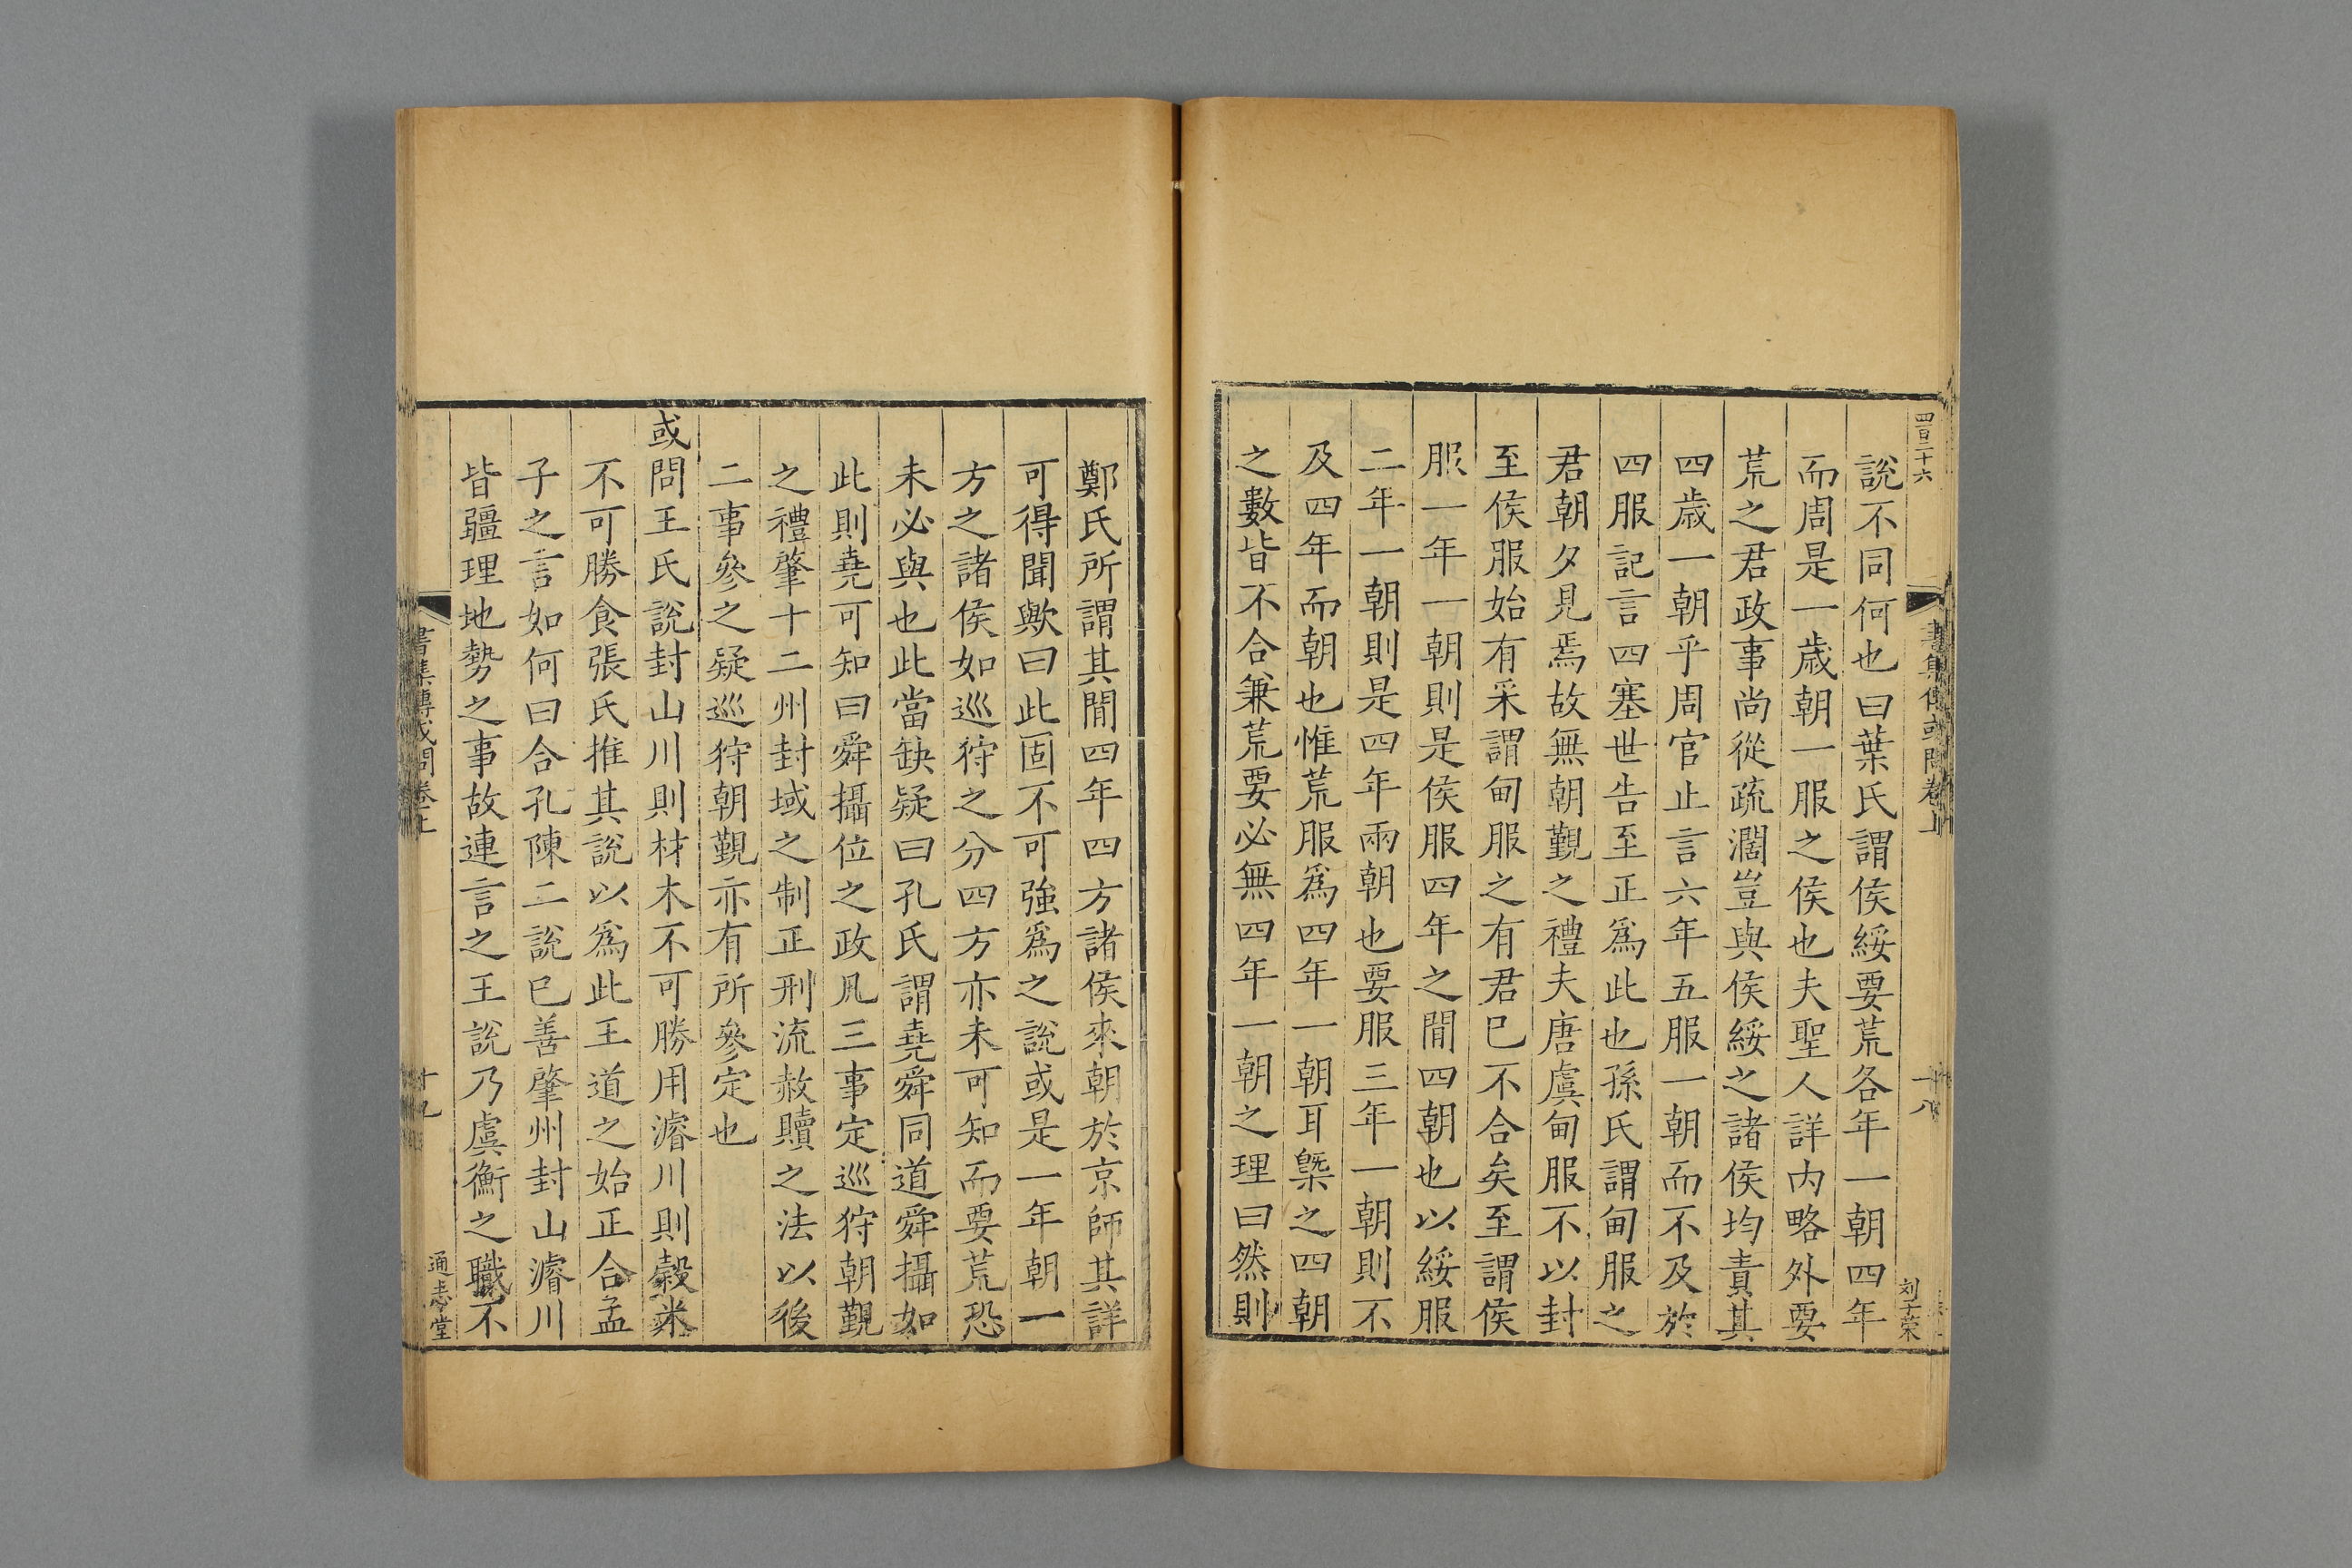 四百二十六
書集傳或問卷上
十八
刘士荣
說不同何也曰葉氏謂侯綏要荒各年一朝四年
而周是一歲朝一服之侯也夫聖人詳內略外要
荒之君政事尚從疏濶豈與侯綏之諸侯均責其
四歲一朝乎周官止言六年五服一朝而不及於
四服記言四塞世告至正爲此也孫氏謂甸服之
君朝夕見焉故無朝覲之禮夫唐虞甸服不以封
至侯服始有采謂甸服之有君已不合矣至謂侯
服一年一朝則是侯服四年之間四朝也以綏服
二年一朝則是四年兩朝也要服三年一朝則不
及四年而朝也惟荒服爲四年一朝耳槩之四朝
之數皆不合兼荒要必無四年一朝之理曰然則
鄭氏所謂其間四年四方諸侯來朝於京師其詳
可得聞歟曰此固不可強爲之說或是一年朝一
方之諸侯如巡狩之分四方亦未可知而要荒恐
未必與也此當缺疑曰孔氏謂堯舜同道舜攝如
此則堯可知曰舜攝位之政凡三事定巡狩朝覲
之禮肇十二州封域之制正刑流赦贖之法以後
二事參之疑巡狩朝覲亦有所參定也
或問王氏說封山川則材木不可勝用濬川則穀米
不可勝食張氏推其說以爲此王道之始正合孟
子之言如何曰合孔陳二說已善肇州封山濬川
皆疆理地勢之事故連言之王說乃虞衡之職不
書集傳或問卷上
十九
通志堂